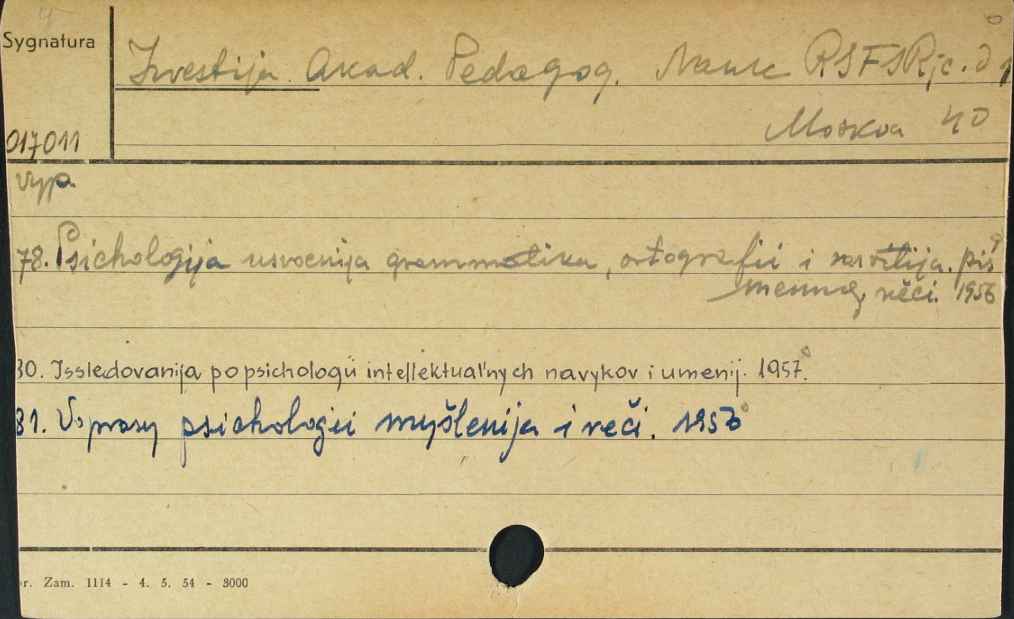 Sygnatura
Izvestija Akad. Pedagog. Nauk RSFSR
Moskva 40
017011
Vyp.
78. Psichologija usvoenija grammatiki, ortografii i razvitija. piś
mennoj reči. 1956
80. Issledovanija po psichologii intellektual'nych navykov i umenij. 1957.
81. Voprosy psichologii myšlenija i reči. 1956
r. Zam. 1114 - 4. 5. 54 - 3000